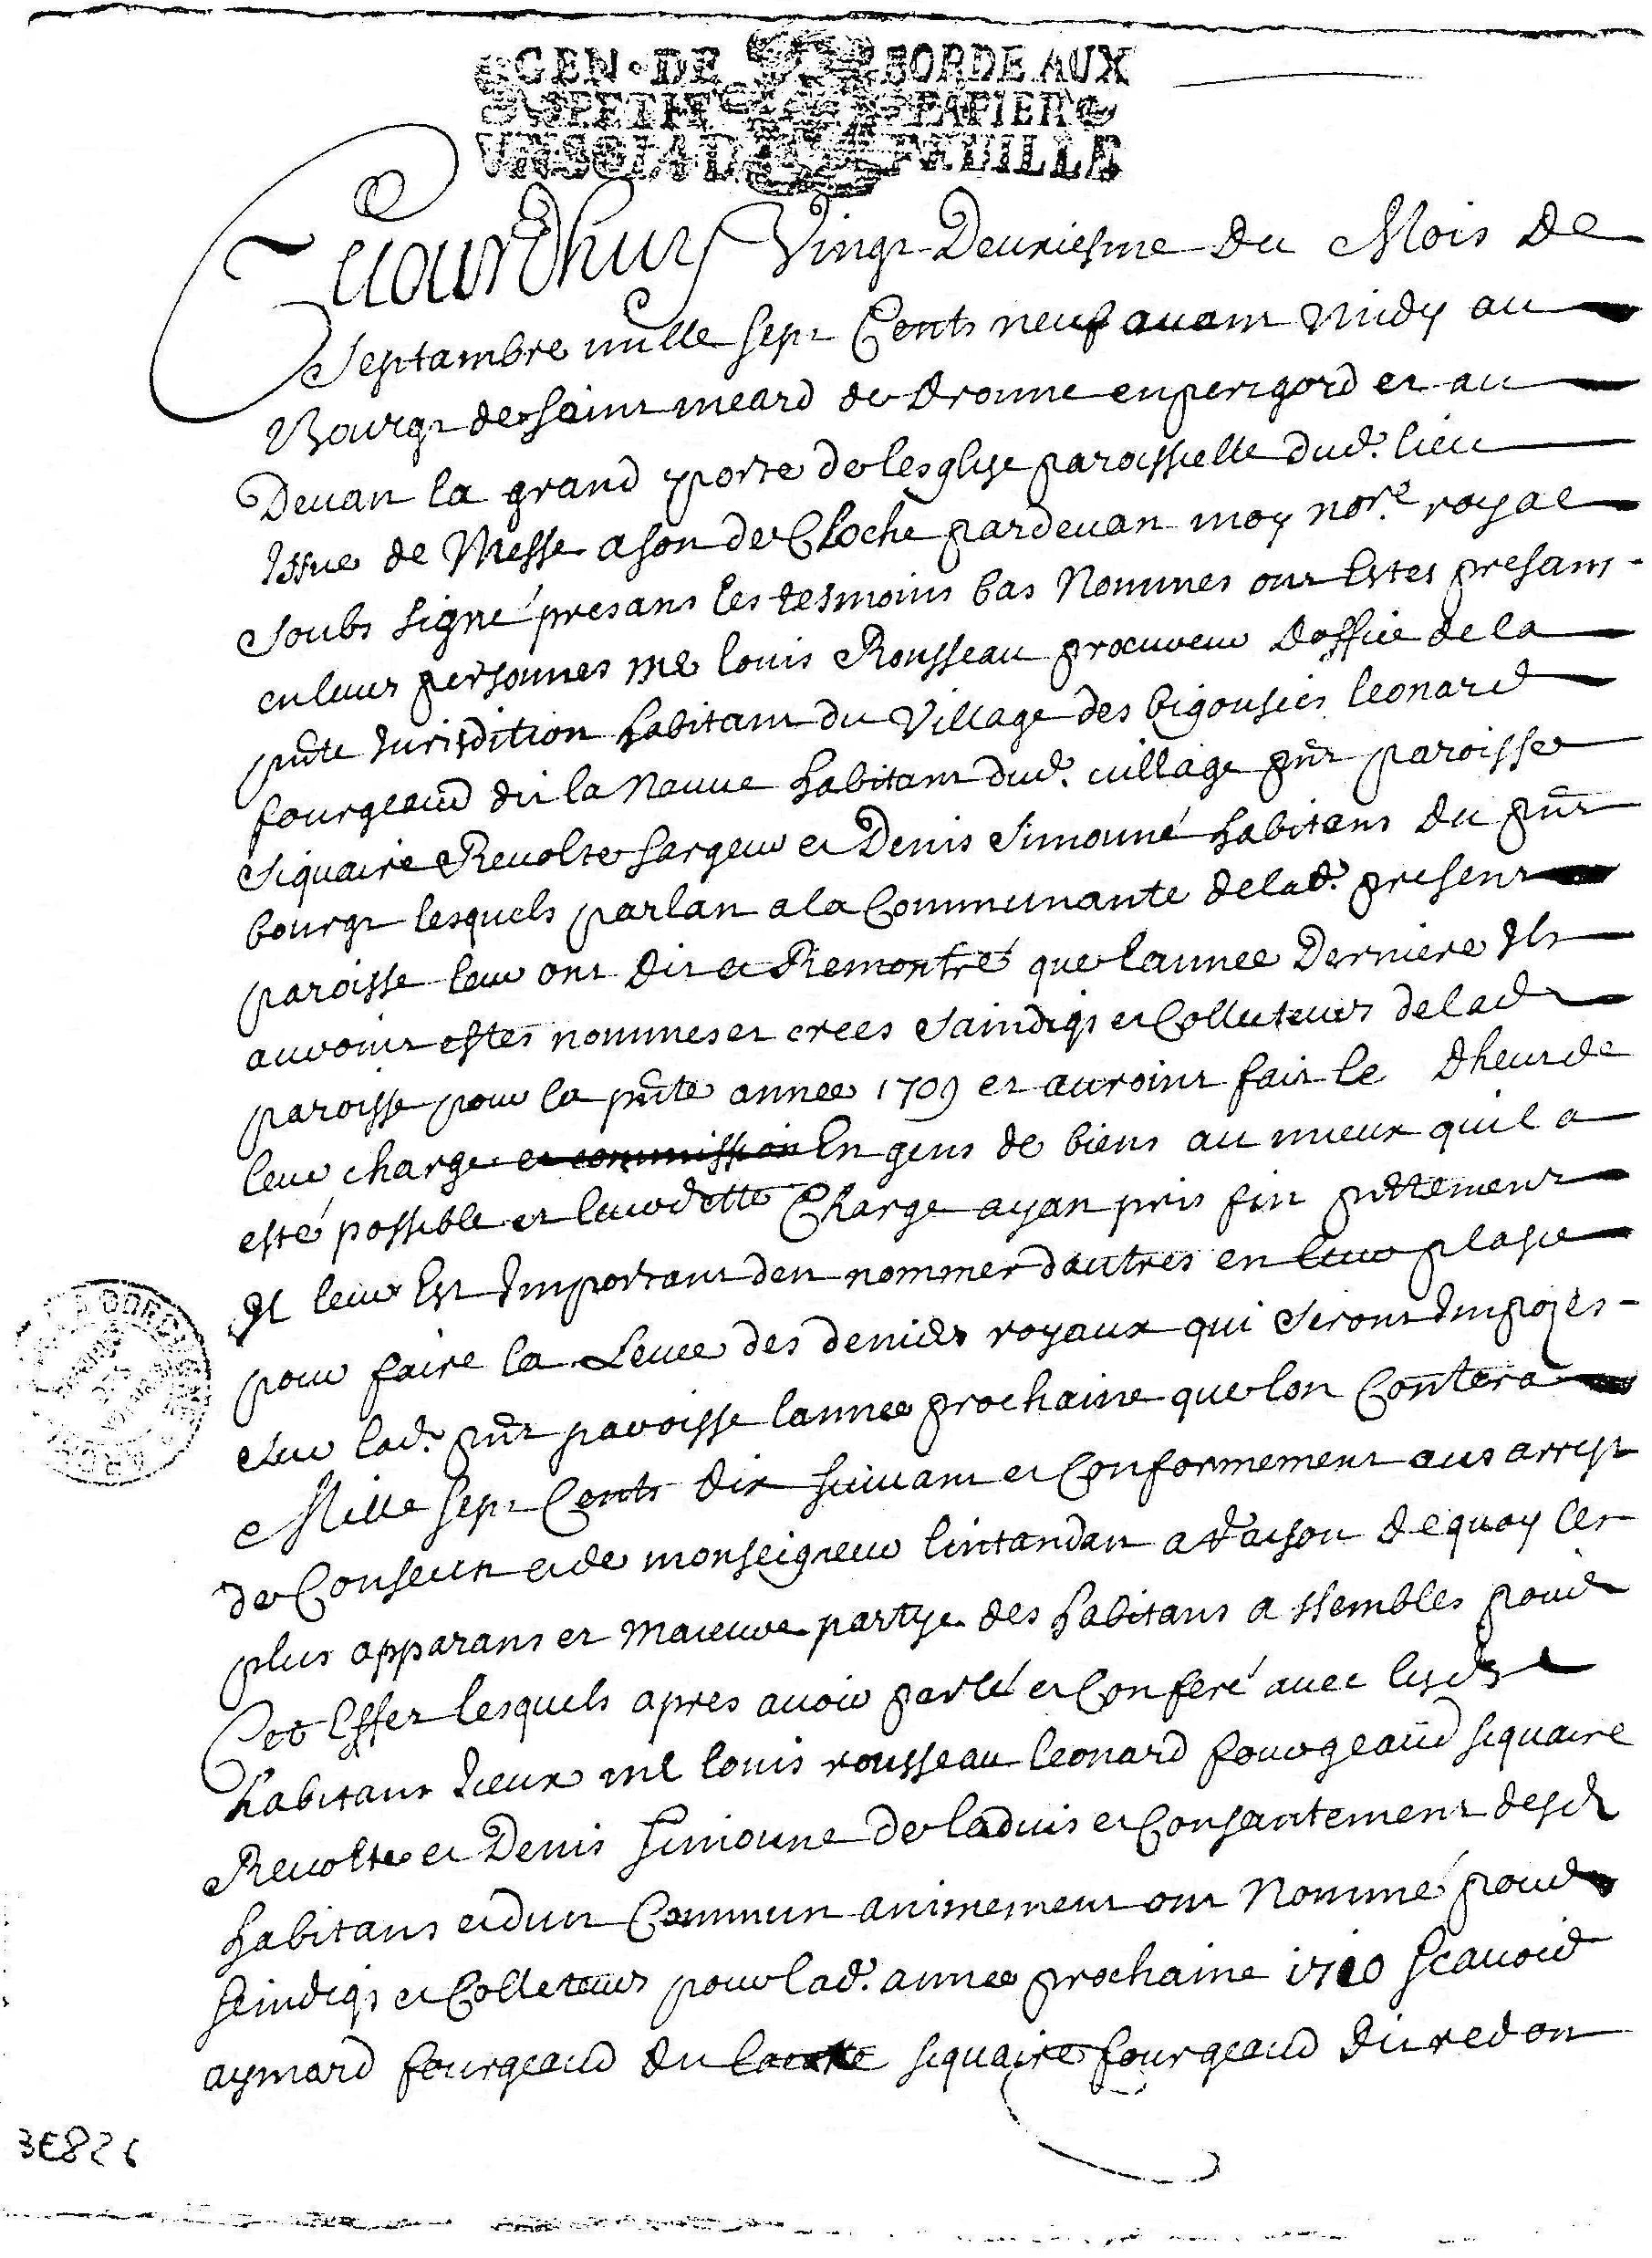 GEN · DE BORDEAUX
PETIT PAPIER
VN SOL LA FEUILLE
Ceiourdhuy Vingt Deuxiesme du Mois de
Septambre mille sept Cents neuf auant midy au
Bourgt de saint meard de dronne en perigord et au
Deuan la grand porte de lesglise paroissielle dud. lieu
Issue de Messe a son de Cloche pardeuan moy nore. royal
soubs signé presans les tesmoins bas Nommes ont Estes presans
en leurs personnes me louis Rousseau procureur doffice de la
pnte Jurisdition habitant du Village des bigousies leonard
fourgeaud dit la Nauue habitant dud. uillage pnt paroisse
siquaire Reuolte sargeur et Denis Simouné habitans du pnt
bourgt lesquels parlan a la Communante de lad. present
paroisse leur ont dit et Remontré que lannee Derniere Ils
auroint estes nommes et crees saindiqs et Colluteurs de lad
paroisse pour la pnte annee 1709 et auroint fait le dheu de
leur charge et commission En gens de biens au mieux quil a
esté possible et leurdette Charge ayan pris fin pntement
Il leur Est Important den nommer dautres en leur plasse
pour faire la Leuee des deniers royaux qui seront Impozes
sur lad. pnt paroisse lannee prochaine que lon Contera
Mille sept Cents dix suiuant et Conformement aus arrest
de Conseil et de monseigneur lintandan a raison dequoy les
plus apparans et maieure partye des habitans assembles pour
Cet Effet lesquels apres auoir parlé et Conferé auec lesd
habitans Iceux me louis rousseau leonard fourgeaud siquaire
Reuolte et Denis Simoune de laduis et Consantement desd
habitans et dun Commun animement ont Nommé pour
seindiqs et Colleteurs pour lad. annee prochaine 1710 scauoir
aymard fourgeaud du siquaire fourgeaud dit redon
3E826